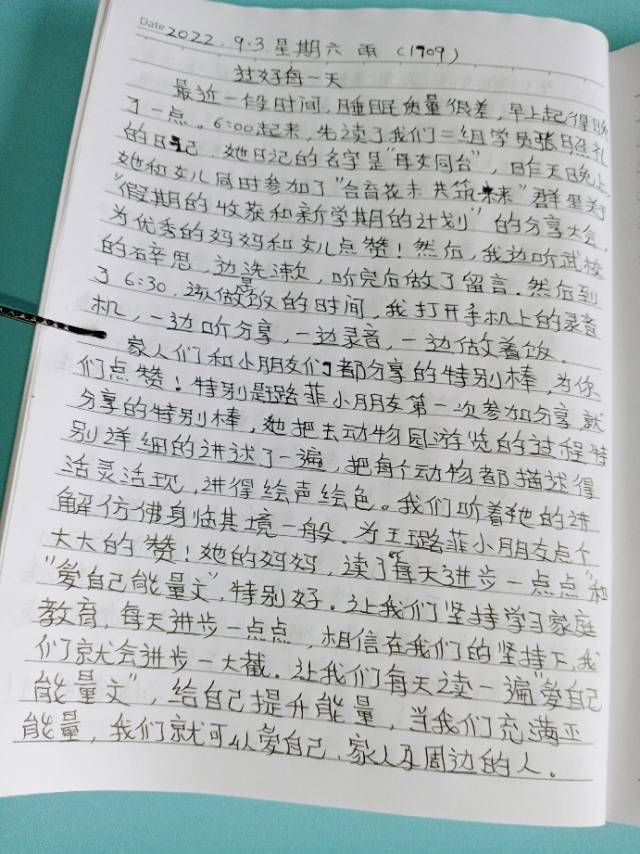 Date 2022.9.3 星期六 雨 (1909)
过好每一天
最近一段时间,睡眠质量很差,早上起得晚
了一点。6:00起来,先读了我们三组学员张照礼
的日记,她日记的名字是"母女同台",昨天晚上,
她和女儿同时参加了"合育花未 共筑未来"群里关于
"假期的收获和新学期的计划"的分享大会,
为优秀的妈妈和女儿点赞!然后,我边听武校
的辟思,边洗漱,听完后做了留言。然后到
了6:30,该做饭的时间,我打开手机上的录音
机,一边听分享,一边录音,一边做着饭。
家人们和小朋友们都分享的特别棒,为你
们点赞!特别是路菲小朋友第一次参加分享就
分享的特别棒,她把去动物园游览的过程特
别详细的讲述了一遍,把每个动物都描述得
活灵活现,讲得绘声绘色。我们听着她的讲
解仿佛身临其境一般。为王璐菲小朋友点个
大大的赞!她的妈妈,读了"每天进步一点点"和
"爱自己能量文",特别好。让我们坚持学习家庭
教育,每天进步一点点,相信在我们的坚持下,我
们就会进步一大截。让我们每天读一遍"爱自己
能量文",给自己提升能量,当我们充满正
能量,我们就可以爱自己、家人及周边的人。